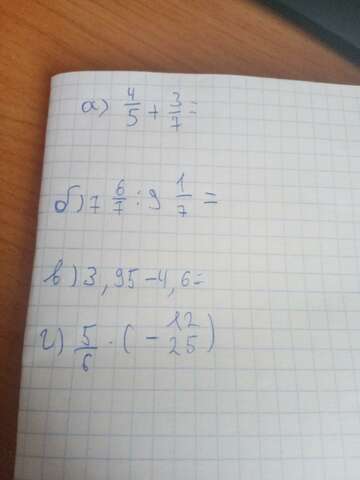 а) 4/5 + 3/7 =
б) 7 6/7 : 9 1/7 =
в) 3,95-4,6=
г) 5/6 · (- 12/25)